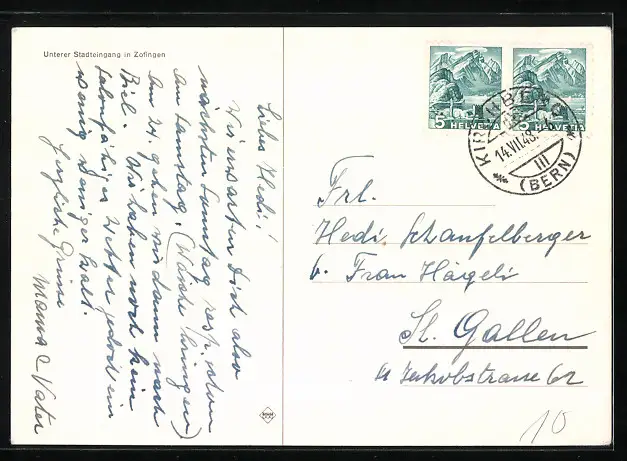 Unterer Stadteingang in Zofingen
Liebes Hedi!
Wir erwarten Dich also
nächsten Sonntag resp. schon
am Samstag. (Wäsche bringen)
Am 24. gehen wir dann nach
Biel. Wir haben noch kein
wenig weniger kalt.
Herzliche Grüsse
Mamma & Vater
5 HELVETIA
5 HELVETIA
KIRCHBERG
14.VII.48
III
(BERN)
Frl.
Hedi Schaufelberger
b. Frau Hägeli
St. Gallen
Jakobstrasse 62
10